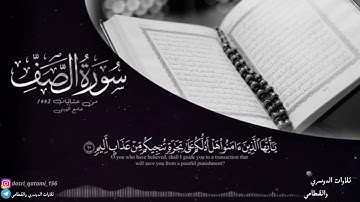 سورة الصف
من عشائيات 1443
يَٰٓأَيُّهَا ٱلَّذِينَ ءَامَنُوا۟ هَلْ أَدُلُّكُمْ عَلَىٰ تِجَٰرَةٍ تُنجِيكُم مِّنْ عَذَابٍ أَلِيمٍ
O you who have believed, shall I guide you to a transaction that
will save you from a painful punishment?
dosri_qatami_156
تلاوات الدوسري والقطامي
تلاوات الدوسري
والقطامي